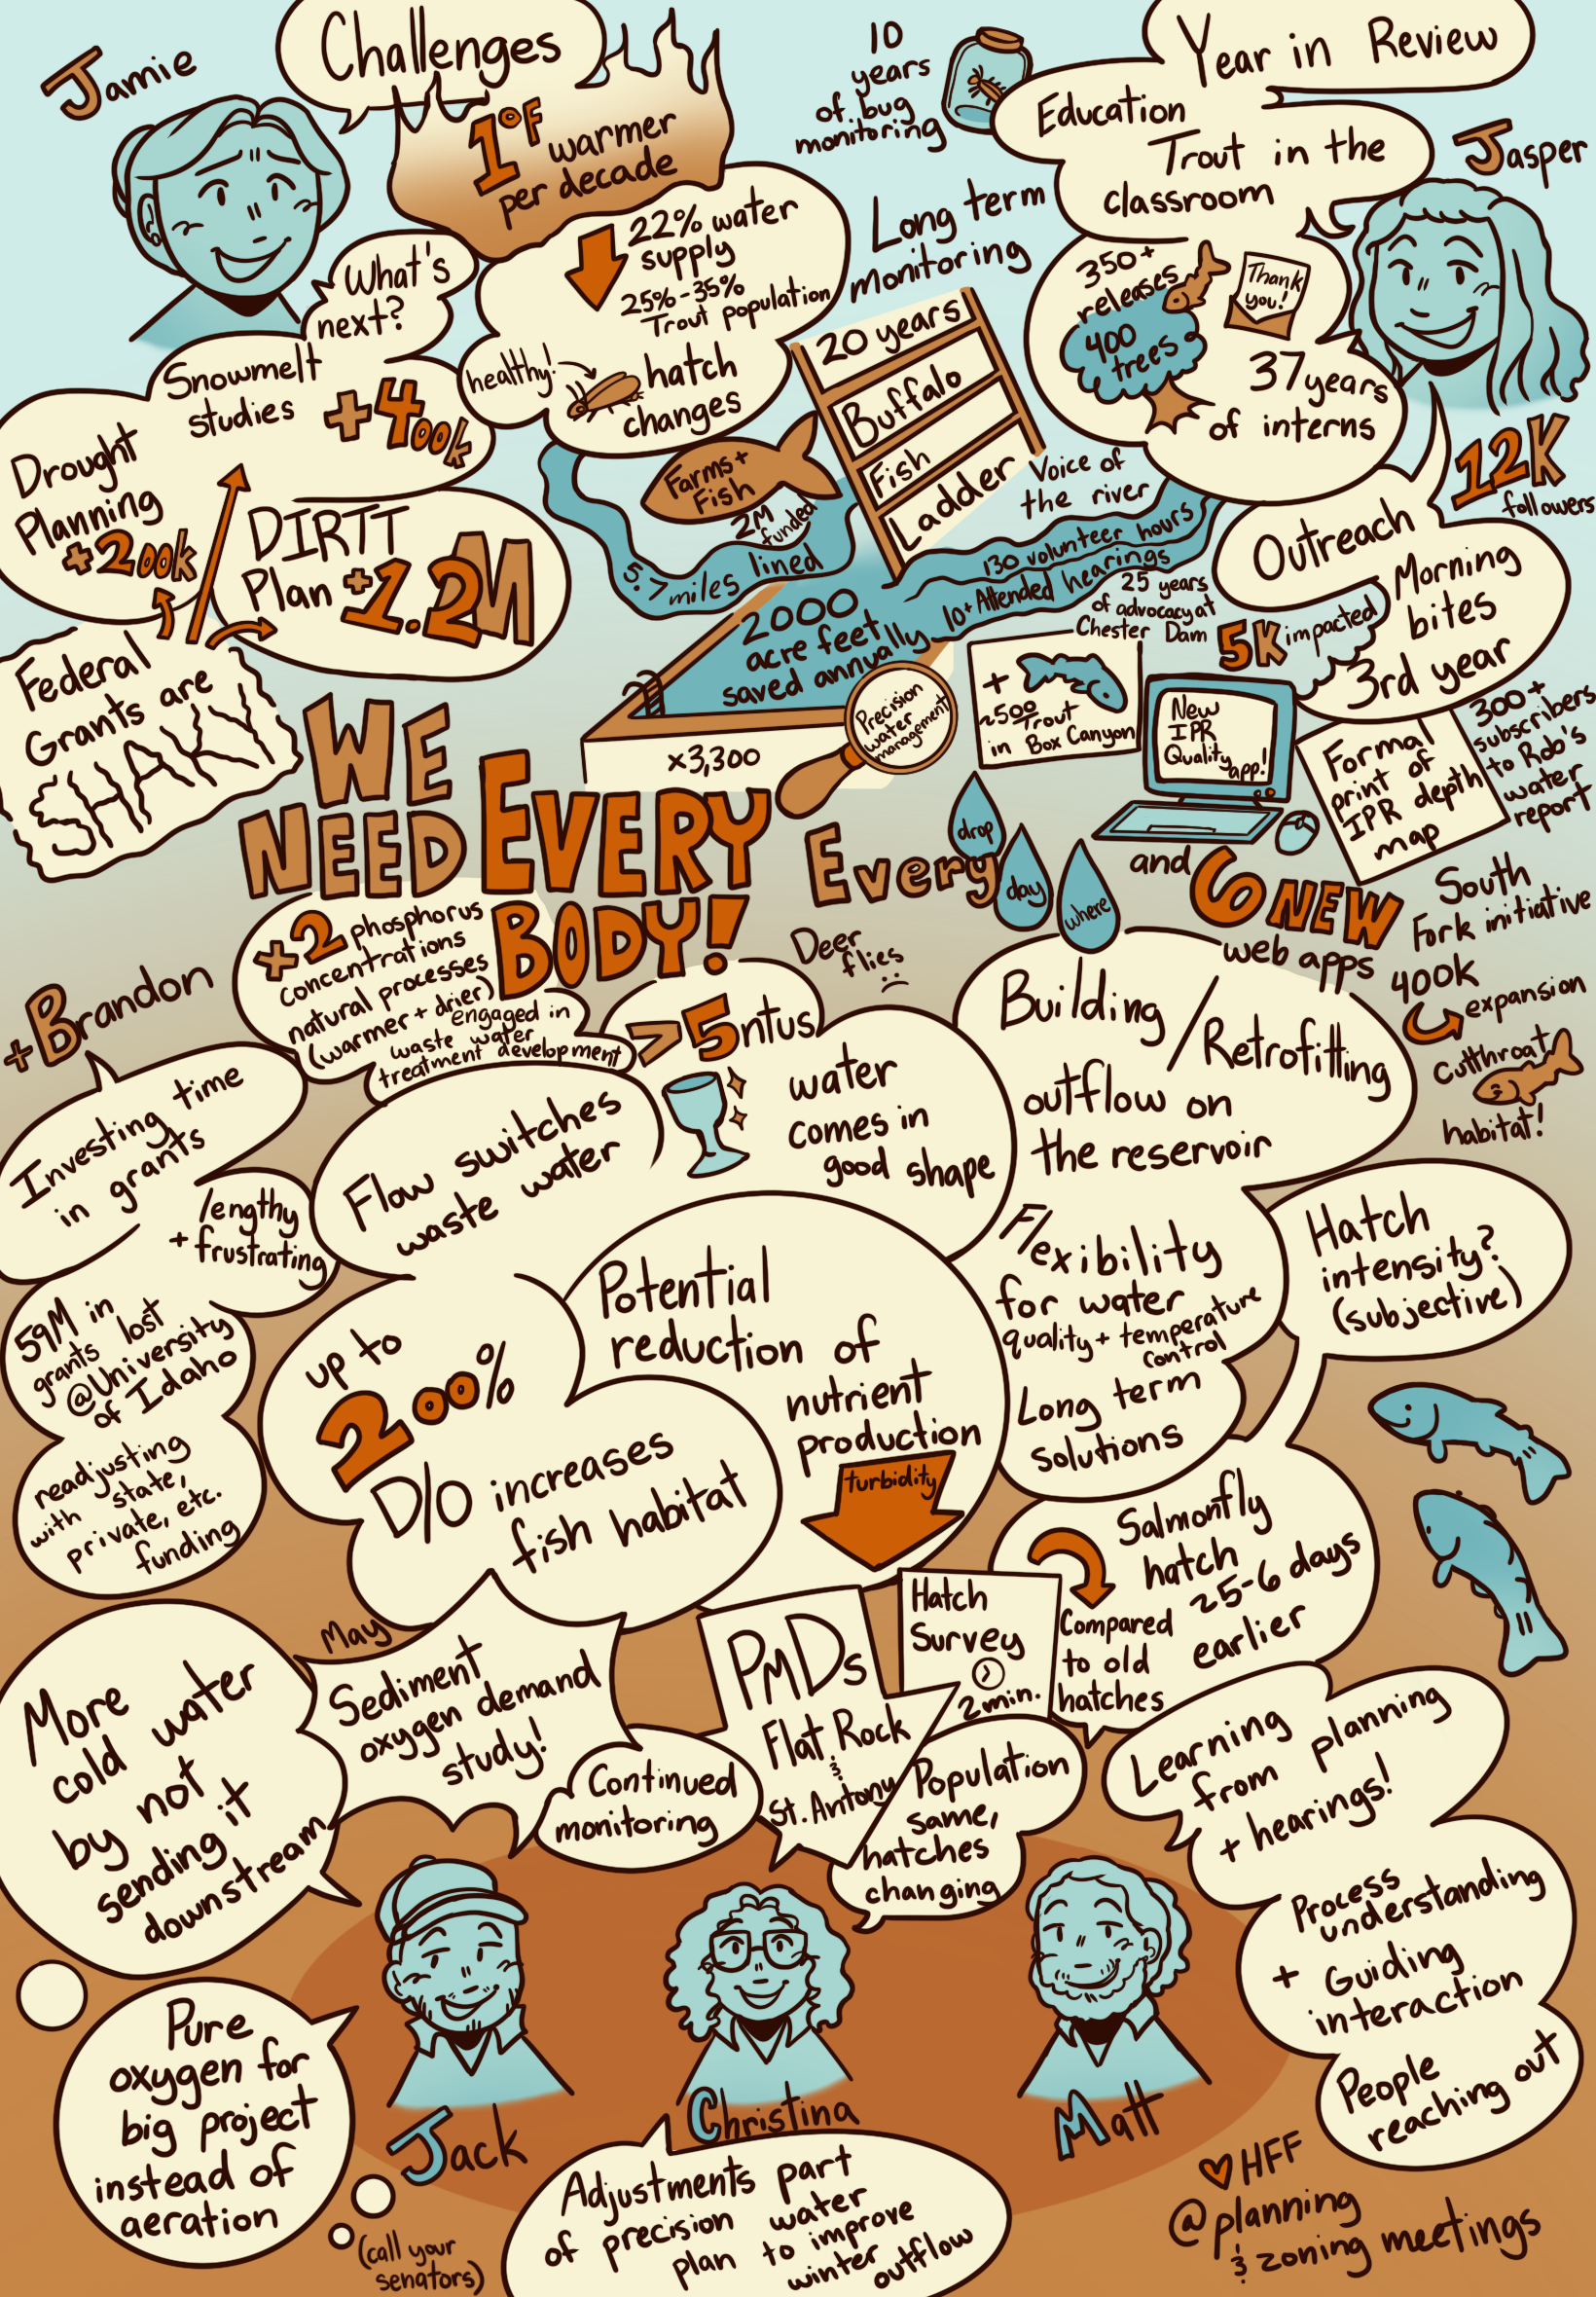 Jamie
Challenges
1°F warmer
per decade
22% water
supply
25%-35%
Trout population
healthy!
hatch
changes
What's
next?
Snowmelt
studies
+400k
Drought
Planning
+200k
DIRTT
Plan +1.2M
Federal
Grants are
SHAKY
10
years
of bug
monitoring
Long term
monitoring
20 years
Buffalo
Fish
Ladder
Farms +
Fish
2M
funded
5.7 miles lined
2000
acre feet
saved annually
x3,300
Precision
water
management
Voice of
the river
130 volunteer hours
10+ Attended hearings
25 years
of advocacy at
Chester Dam
+
~500
Trout
in Box Canyon
Year in Review
Education
Trout in the
classroom
Jasper
350+
releases
400
trees
Thank
you!
37 years
of interns
12K
followers
Outreach
Morning
bites
3rd year
5K impacted
New
IPR
Quality
app!
Formal
print of
IPR depth
map
300+
subscribers
to Rob's
water
report
and 6 NEW
web apps
South
Fork initiative
400K
expansion
Cutthroat
habitat!
WE
NEED
EVERY
BODY!
Every
drop
day
where
+Brandon
Investing time
in grants
lengthy
+ frustrating
59M in
grants lost
@University
of Idaho
readjusting
with state,
private, etc.
funding
+2 phosphorus
concentrations
natural processes
(warmer + drier)
engaged in
waste water
treatment development
>5ntus
Deer
flies
water
comes in
good shape
Flow switches
waste water
Building
/Retrofitting
outflow on
the reservoir
Flexibility
for water
quality + temperature
control
Long term
solutions
Hatch
intensity?
(subjective)
up to
200%
D/O increases
fish habitat
Potential
reduction of
nutrient
production
turbidity
Salmonfly
hatch
~5-6 days
earlier
Compared
to old
hatches
Hatch
Survey
2 min.
PMDs
Flat Rock
&
St. Antony
Population
same,
hatches
changing
May
Sediment
oxygen demand
study!
Continued
monitoring
More
cold water
by not
sending it
downstream
Pure
oxygen for
big project
instead of
aeration
(call your
senators)
Jack
Christina
Matt
Adjustments part
of precision water
plan to improve
winter
outflow
Learning
from planning
+ hearings!
Process
understanding
+ Guiding
interaction
People
reaching out
HFF
@planning
& zoning meetings